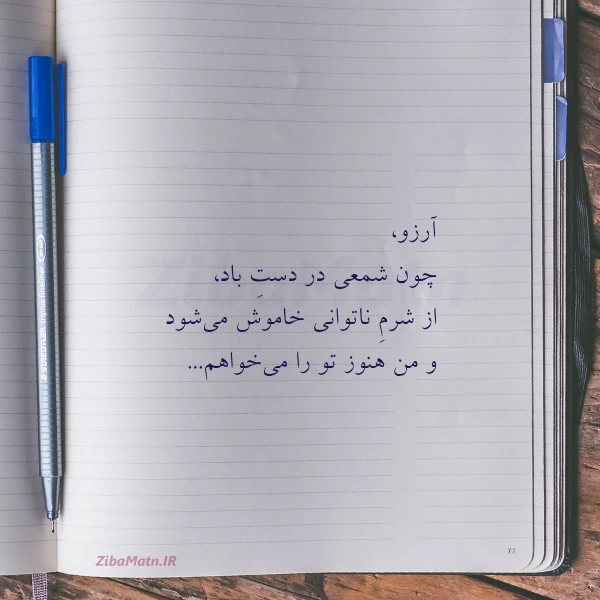 آرزو،
چون شمعی در دستِ باد،
از شرمِ ناتوانی خاموش می‌شود
و من هنوز تو را می‌خواهم...
ZibaMatn.IR